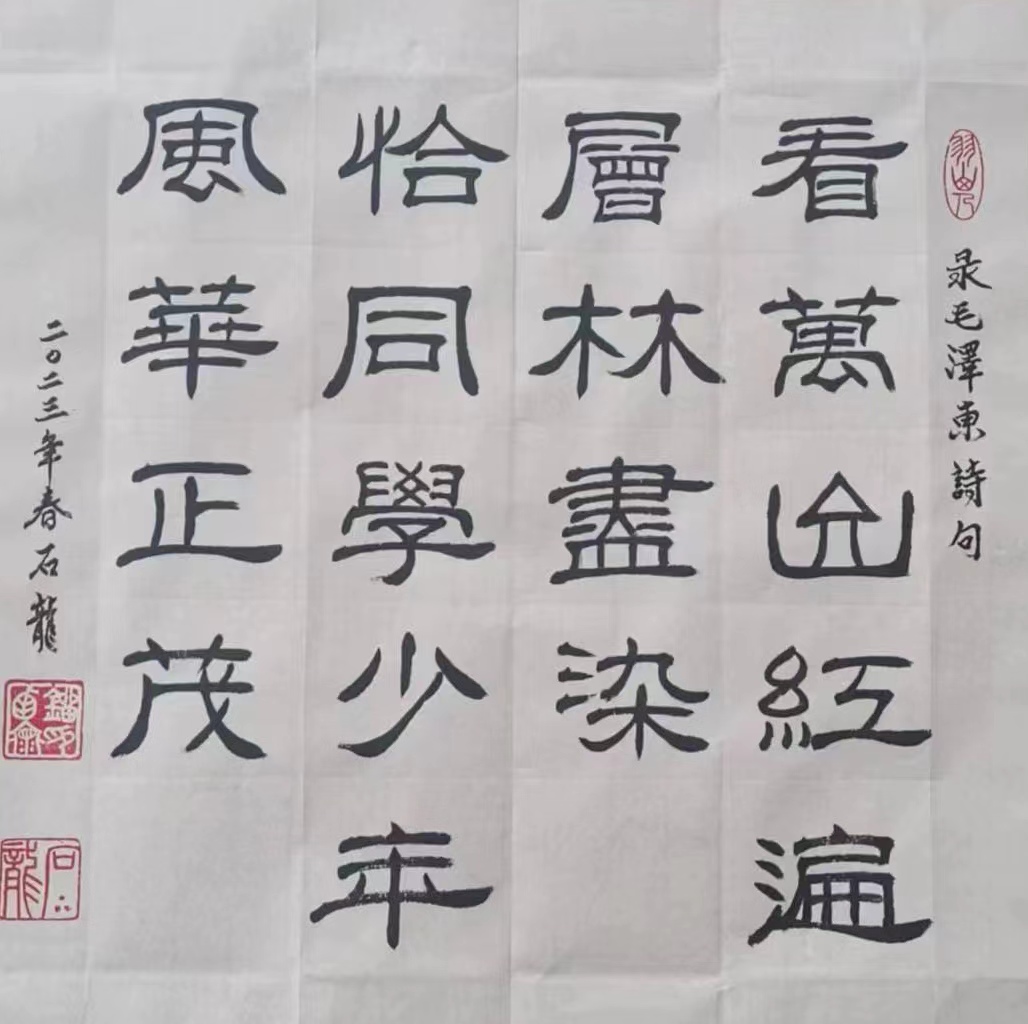 录毛澤東詩句
看萬山紅遍
層林盡染
恰同學少年
風華正茂
二〇二三年春石龍
石龍